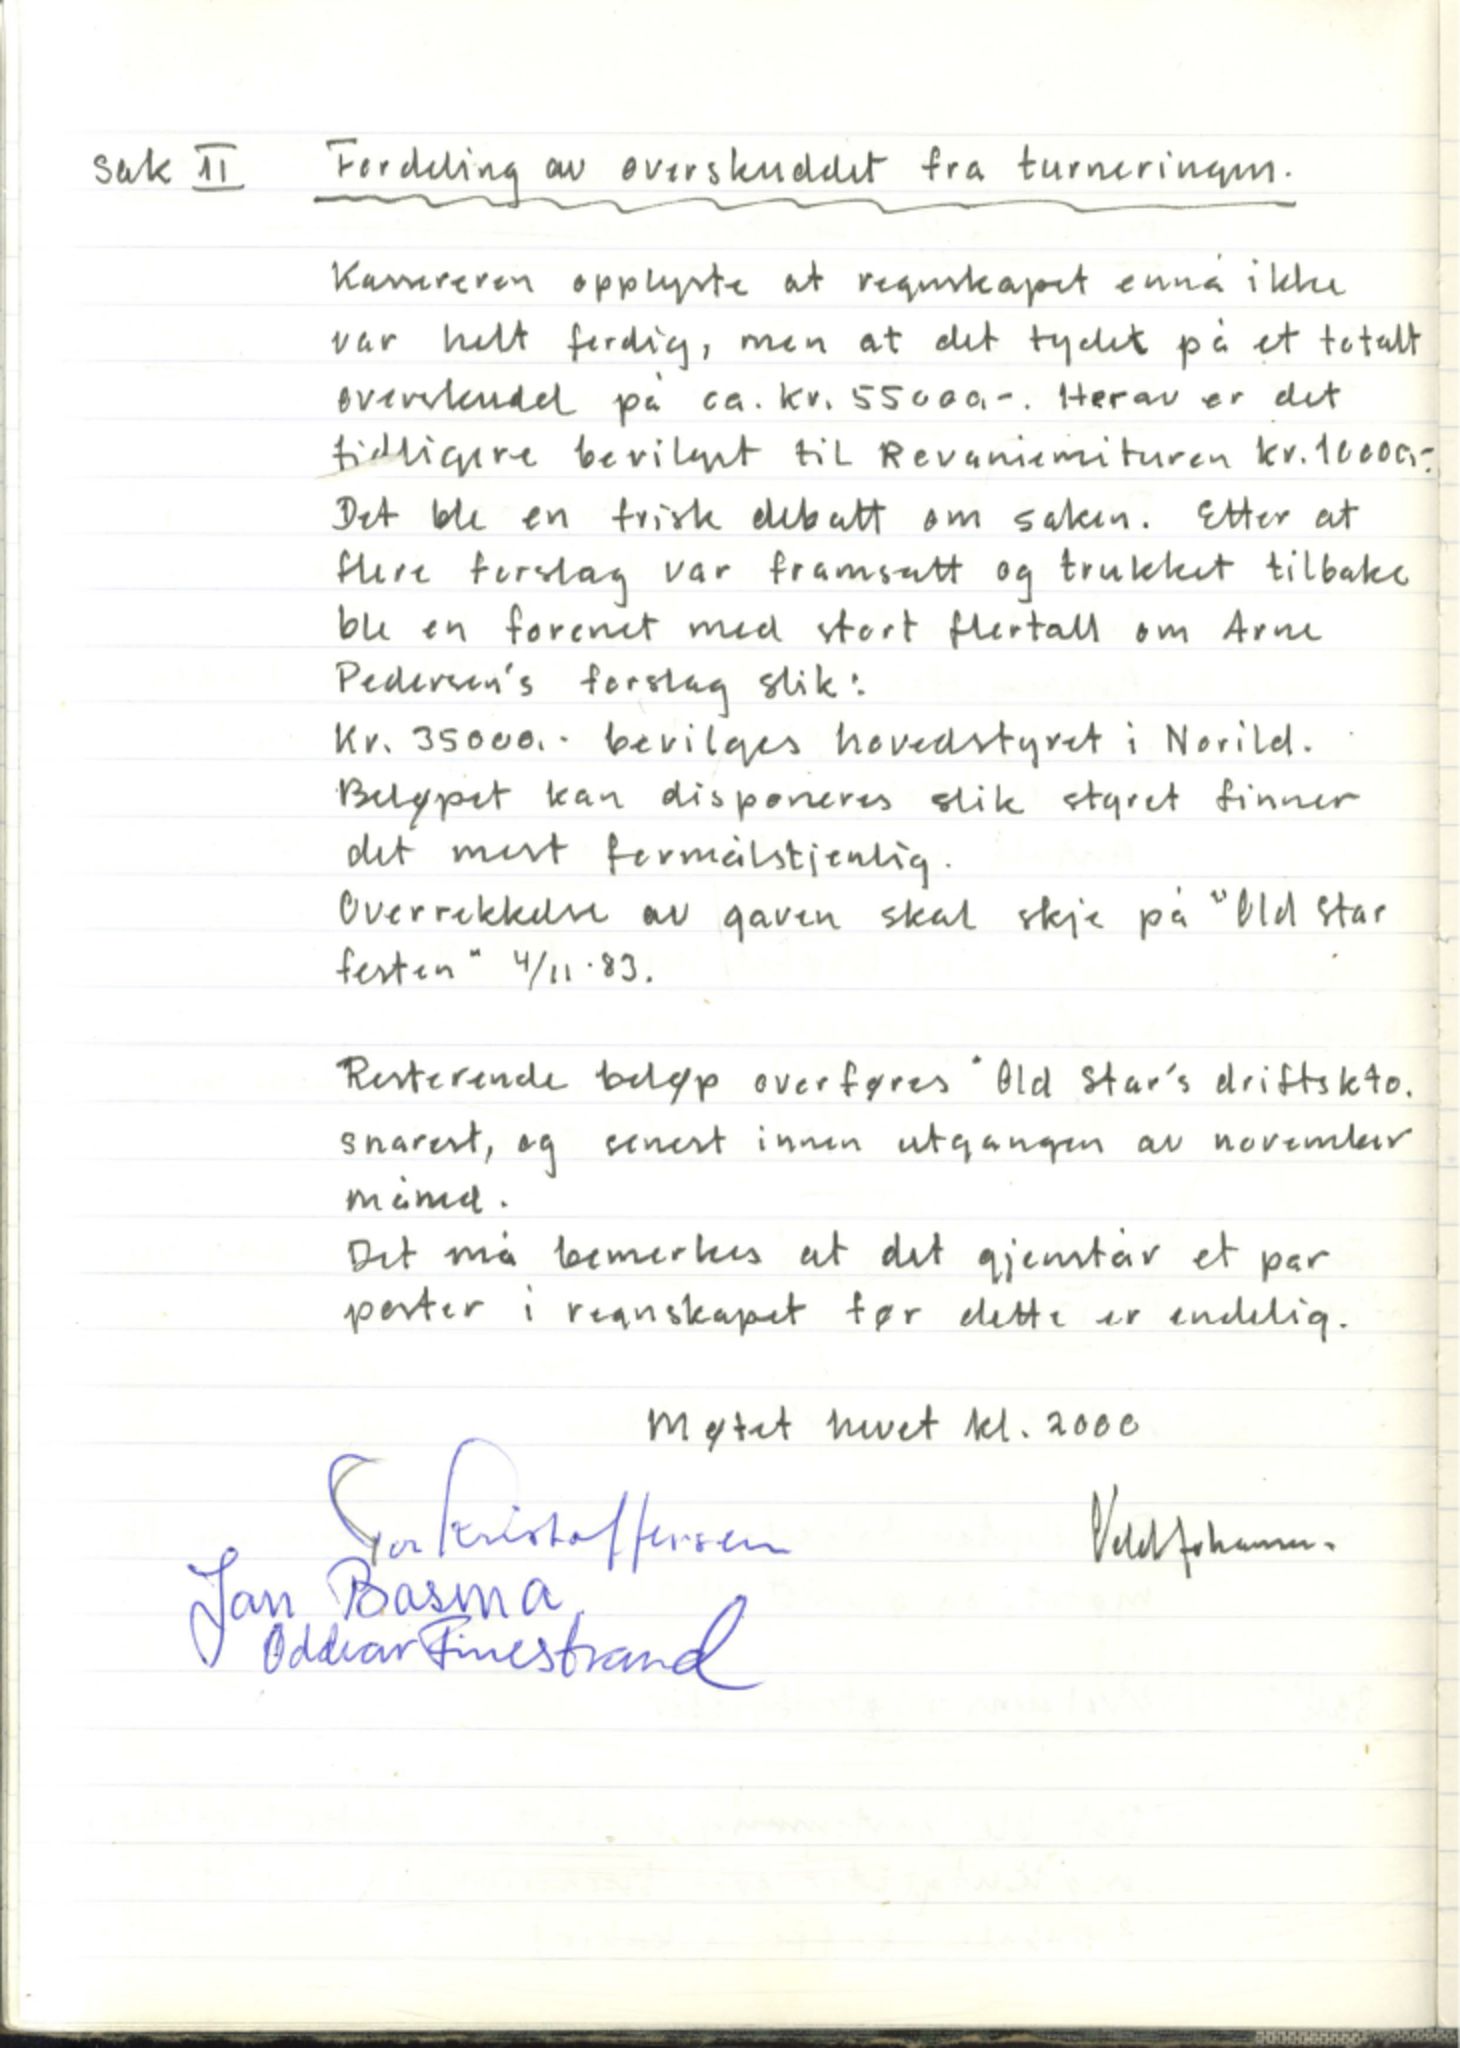 Sak II Fordeling av overskuddet fra turneringen.
Kassereren opplyste at regnskapet ennå ikke
var helt ferdig, men at det tydet på et totalt
overskudd på ca. kr. 55000.-. Herav er det
tidligere bevilget til Revaniemituren kr. 10000.-
Det ble en frisk debatt om saken. Etter at
flere forslag var framsatt og trukket tilbake
ble en forenet med stort flertall om Arne
Pedersen's forslag slik:
Kr. 35000.- bevilges hovedstyret i Norild.
Beløpet kan disponeres slik styret finner
det mest formålstjenlig.
Overrekkelse av gaven skal skje på "Old Star
festen" 4/11-83.
Resterende beløp overføres "Old Star's driftskto.
snarest, og senest innen utgangen av november
måned.
Det må bemerkes at det gjenstår et par
poster i regnskapet før dette er endelig.
Møtet hevet kl. 2000
Kristoffersen
Jan Basma
Oddvar Finestrand